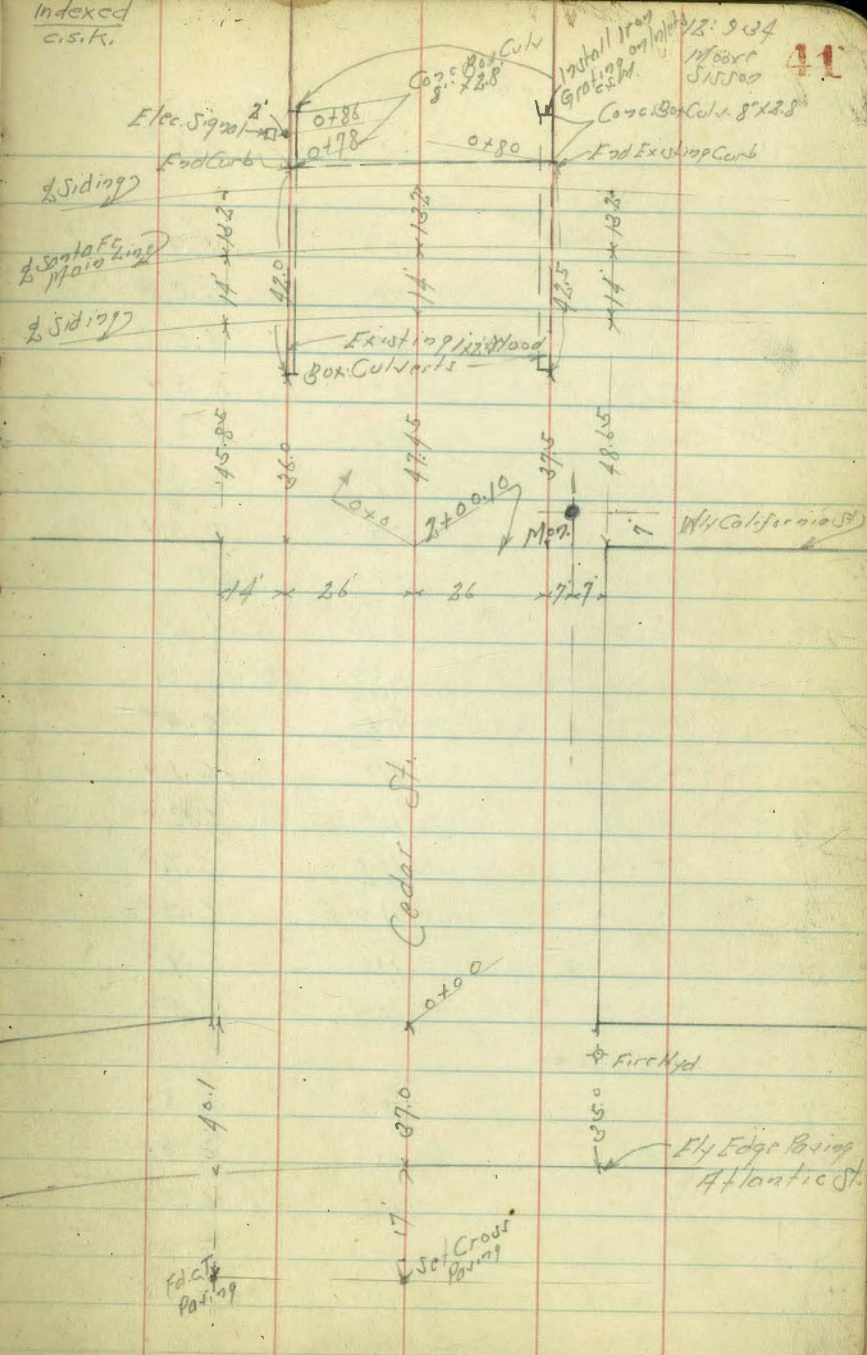 Indexed
C.S.K.
12-9-34
Moore
Sisson
41
Conc. Box Culv
8" x 2.8'
Install Iron
Grating on Inlets
C.S.M.
Elec. Signal
2'
0+86
0+78
0+80
Conc. Box Culv. 8" x 2.8
End Curb
End Existing Curb
℄ Siding
℄ Santa Fe
Main Line
℄ Siding
14' 13.2
42.0
14' 13.2
42.5
14' 13.2
Existing 1x2 Wood
Box Culverts
45.85
36.0
47.45
37.5
48.65
0+0
2+00.10
Mon.
7'
Wly California St
14' 26' 26 7' 7'
Cedar St.
0+00
Fire Hyd.
40.1
37.0
35.0
Ely Edge Paving
Atlantic St.
17'
Set Cross
Paving
Paving